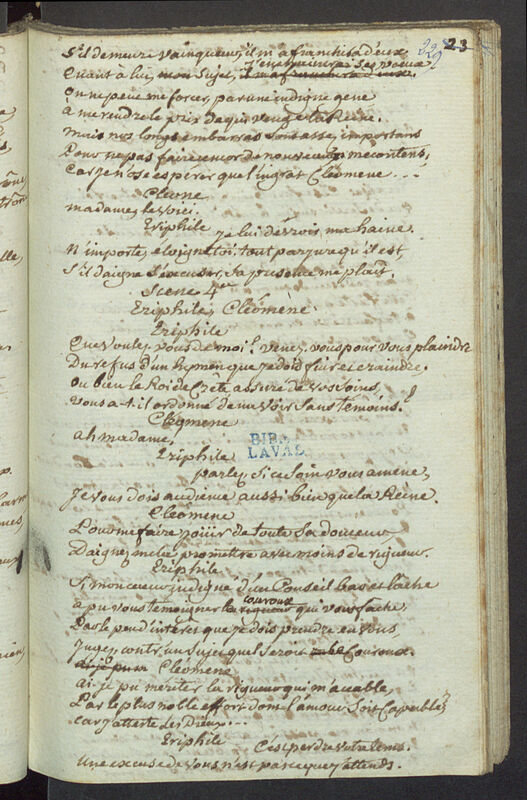 23
329
S'il demeure vainqueur, il m'affranchira d'eux
Quant à lui, mon Sujet, J'enchainerai ses voeux
On ne peut me forcer, par une indigne gene
à me rendre le prix de qui venge la Reine.
mais nos longs embarras sont assez importans
Pour ne pas faire encor de nouveaux mecontens,
Car je n'ose esperer que l'ingrat Cléomene . . . .
Cleone
madame, le voici.
Eriphile
Je lui devrois ma haine.
N'importe, eloigne toi. tout parjure qu'il est,
S'il daigne s'excuser, sa presence me plait.
Scene 4e
Eriphile, Cléoméne
Eriphile
Que voulez vous de moi? venez vous pour vous plaindre
Du refus d'un hymen que je dois fuir et craindre.
Ou bien le Roi de Crête assuré de vos soins,
Vous a-t-il ordonné de me voir sans témoins?
Cléomene
ah madame!
Eriphile
parlez. Si ce soin vous amene,
Je vous dois audience aussi bien que la Reine.
Cléomene
Pour me faire jouir de toute sa douceur
Daignez me la promettre avec moins de rigueur.
Eriphile
Si mon coeur indigné d'un Conseil bas et lâche
a pu vous temoigner la rigueur couroux qui vous fache,
Par le peu d'interet que je dois prendre en vous,
Jugez contr'un sujet quel seroit Couroux.
ai-je pu Cléomene
ai-je pu meriter la rigueur qui m'accable,
Par le plus noble effort dont l'amour soit Capable?
car j'atteste les Dieux...
Eriphile
C'est perdre votre tems.
Une excuse de vous n'est pas ce que j'attends.
BIB.
LAVAL